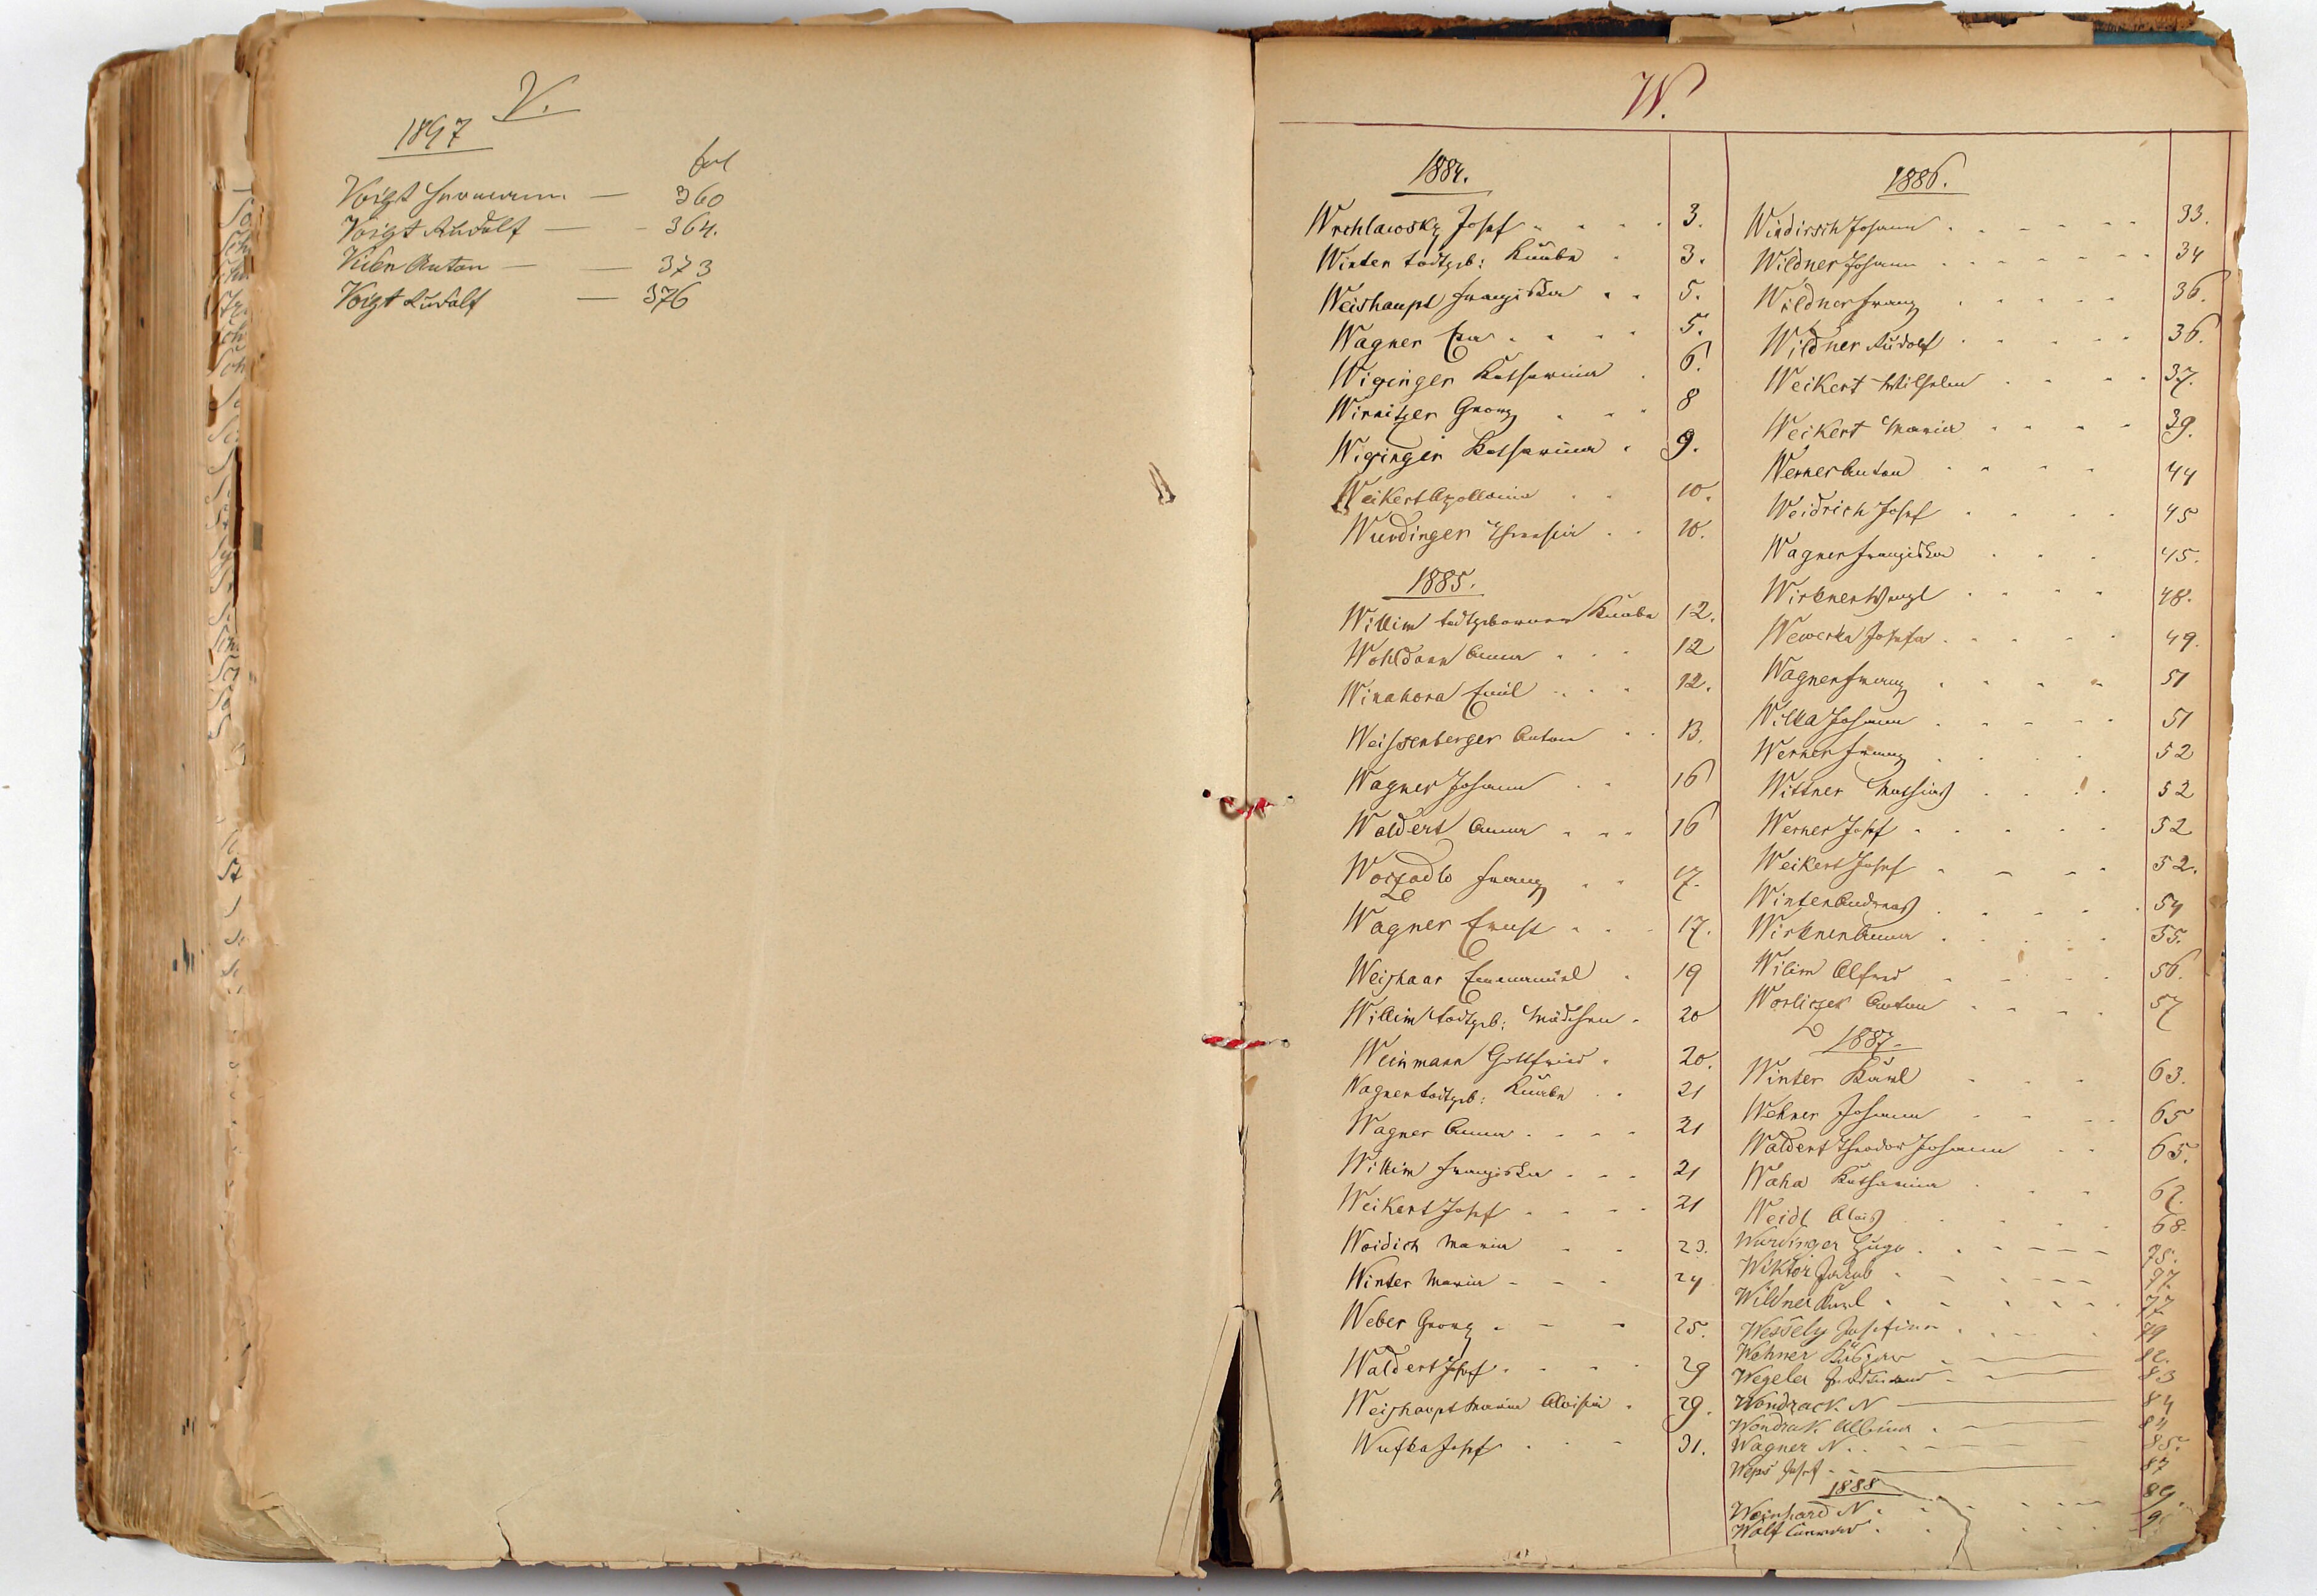 V.
1897
fol
Voigt Hermann — 360
Voigt Rudolf — 364.
Anton — 373
Voigt Rudolf — 376
W.
1884.
Wrchlawosky Josef 3.
Winter todtgeb: Knabe 3.
Weishaupt Franziska 5.
Wagner Eva 5.
Wiginger Katharina 6.
Wirnitzer Georg 8
Wiginger Katharina 9.
Weikert Apollonia 10.
Wurdinger Theresia 10.
1885.
Willim todtgeborener Knabe 12.
Wohldann Anna 12
Winahora Emil 12.
Weissenberger Anton 13.
Wagner Johann 16
Waldert Anna 16
Woizadlo Franz 17.
Wagner Ernst 17.
Weishaar Emanuel 19
Willim todtgeb: Mädchen 20
Weinmann Gottfried 20.
Wagner todtgeb: Knabe 21
Wagner Anna 21
Willim Franziska 21
Weikert Josef 21
Woidich Maria 23.
Winter Maria 24
Weber Georg 25.
Waldert Josef 29
Weishaupt Maria Aloisia 29.
Wufka Josef 31.
1886.
Windirsch Johann 33.
Wildner Johann 34
Wildner Franz 36.
Wildner Rudolf 36.
Weikert Wilhelm 37.
Weikert Maria 39.
Werner Anton 44
Weidrich Josef 45
Wagner Franziska 45.
Wirkner Wenzl 48.
Wewerka Josefa 49.
Wagner Franz 51
Wilka Johann 51
Werner Franz 52
Wittner Mathias 52
Werner Josef 52
Weikert Josef 52.
Winter Andreas 54
Wirkner Anna 55.
Wilim Alfred 56.
Worliczek Anton 57
1887.
Winter Karl 63.
Wehner Johann 65
Waldert Theodor Johann 65.
Waha Katharina 67.
Weidl Alois 68.
Wurdinger Hugo 75.
Wiktor Jakob 77.
Wildner Karl 77
Wessely Josefine 79
Wehner 82.
Wegeler Ferdinand 83
Wondrack N 84
Wondrak Albina 84
Wagner N. 85.
Weps Josef 87
1888
Weinhard N 89.
Wolf 9